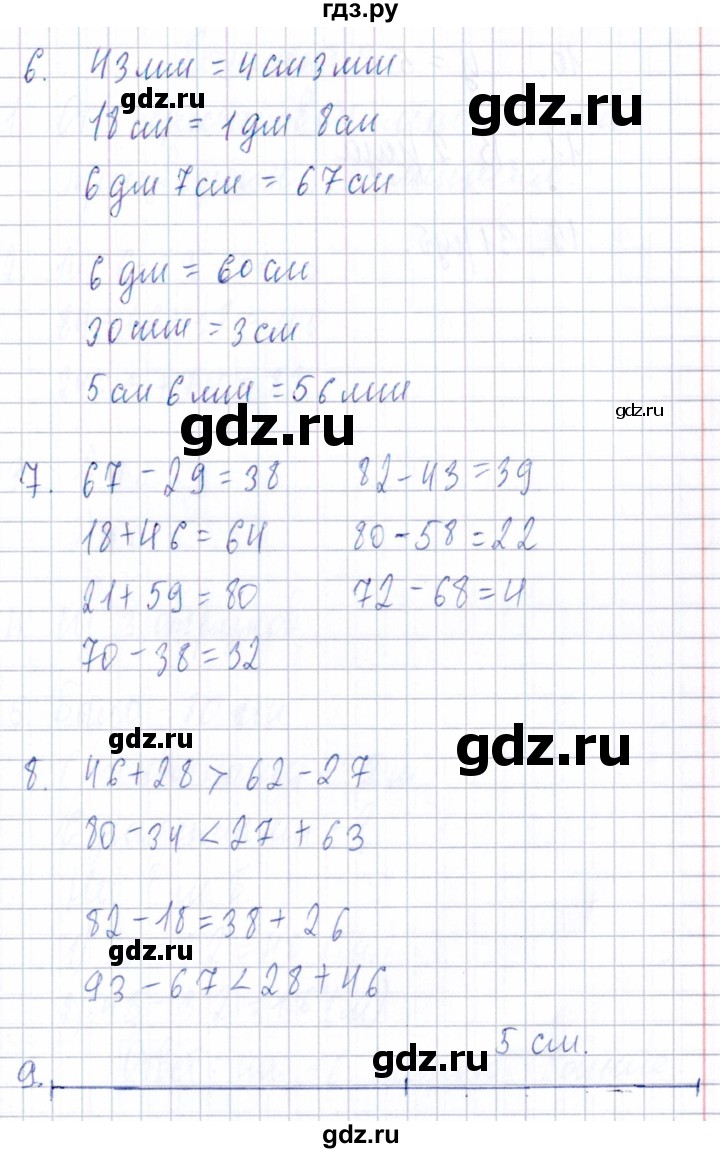 гдз.ру
6. 43 мм = 4 см 3 мм
gdz.ru
gdz.ru
18 см = 1 дм 8 см
6 дм 7 см = 67 см
6 дм = 60 см
30 мм = 3 см
5 см 6 мм = 56 мм
gdz.ru
gdz.ru
7. 67 - 29 = 38 82 - 43 = 39
18 + 46 = 64 80 - 58 = 22
21 + 59 = 80 72 - 68 = 4
70 - 38 = 32
gdz.ru
gdz.ru
8. 46 + 28 > 62 - 27
80 - 34 < 27 + 63
82 - 18 = 38 + 26
gdz.ru
93 - 67 < 28 + 46
5 см.
gdz.ru
9.
gdz.ru